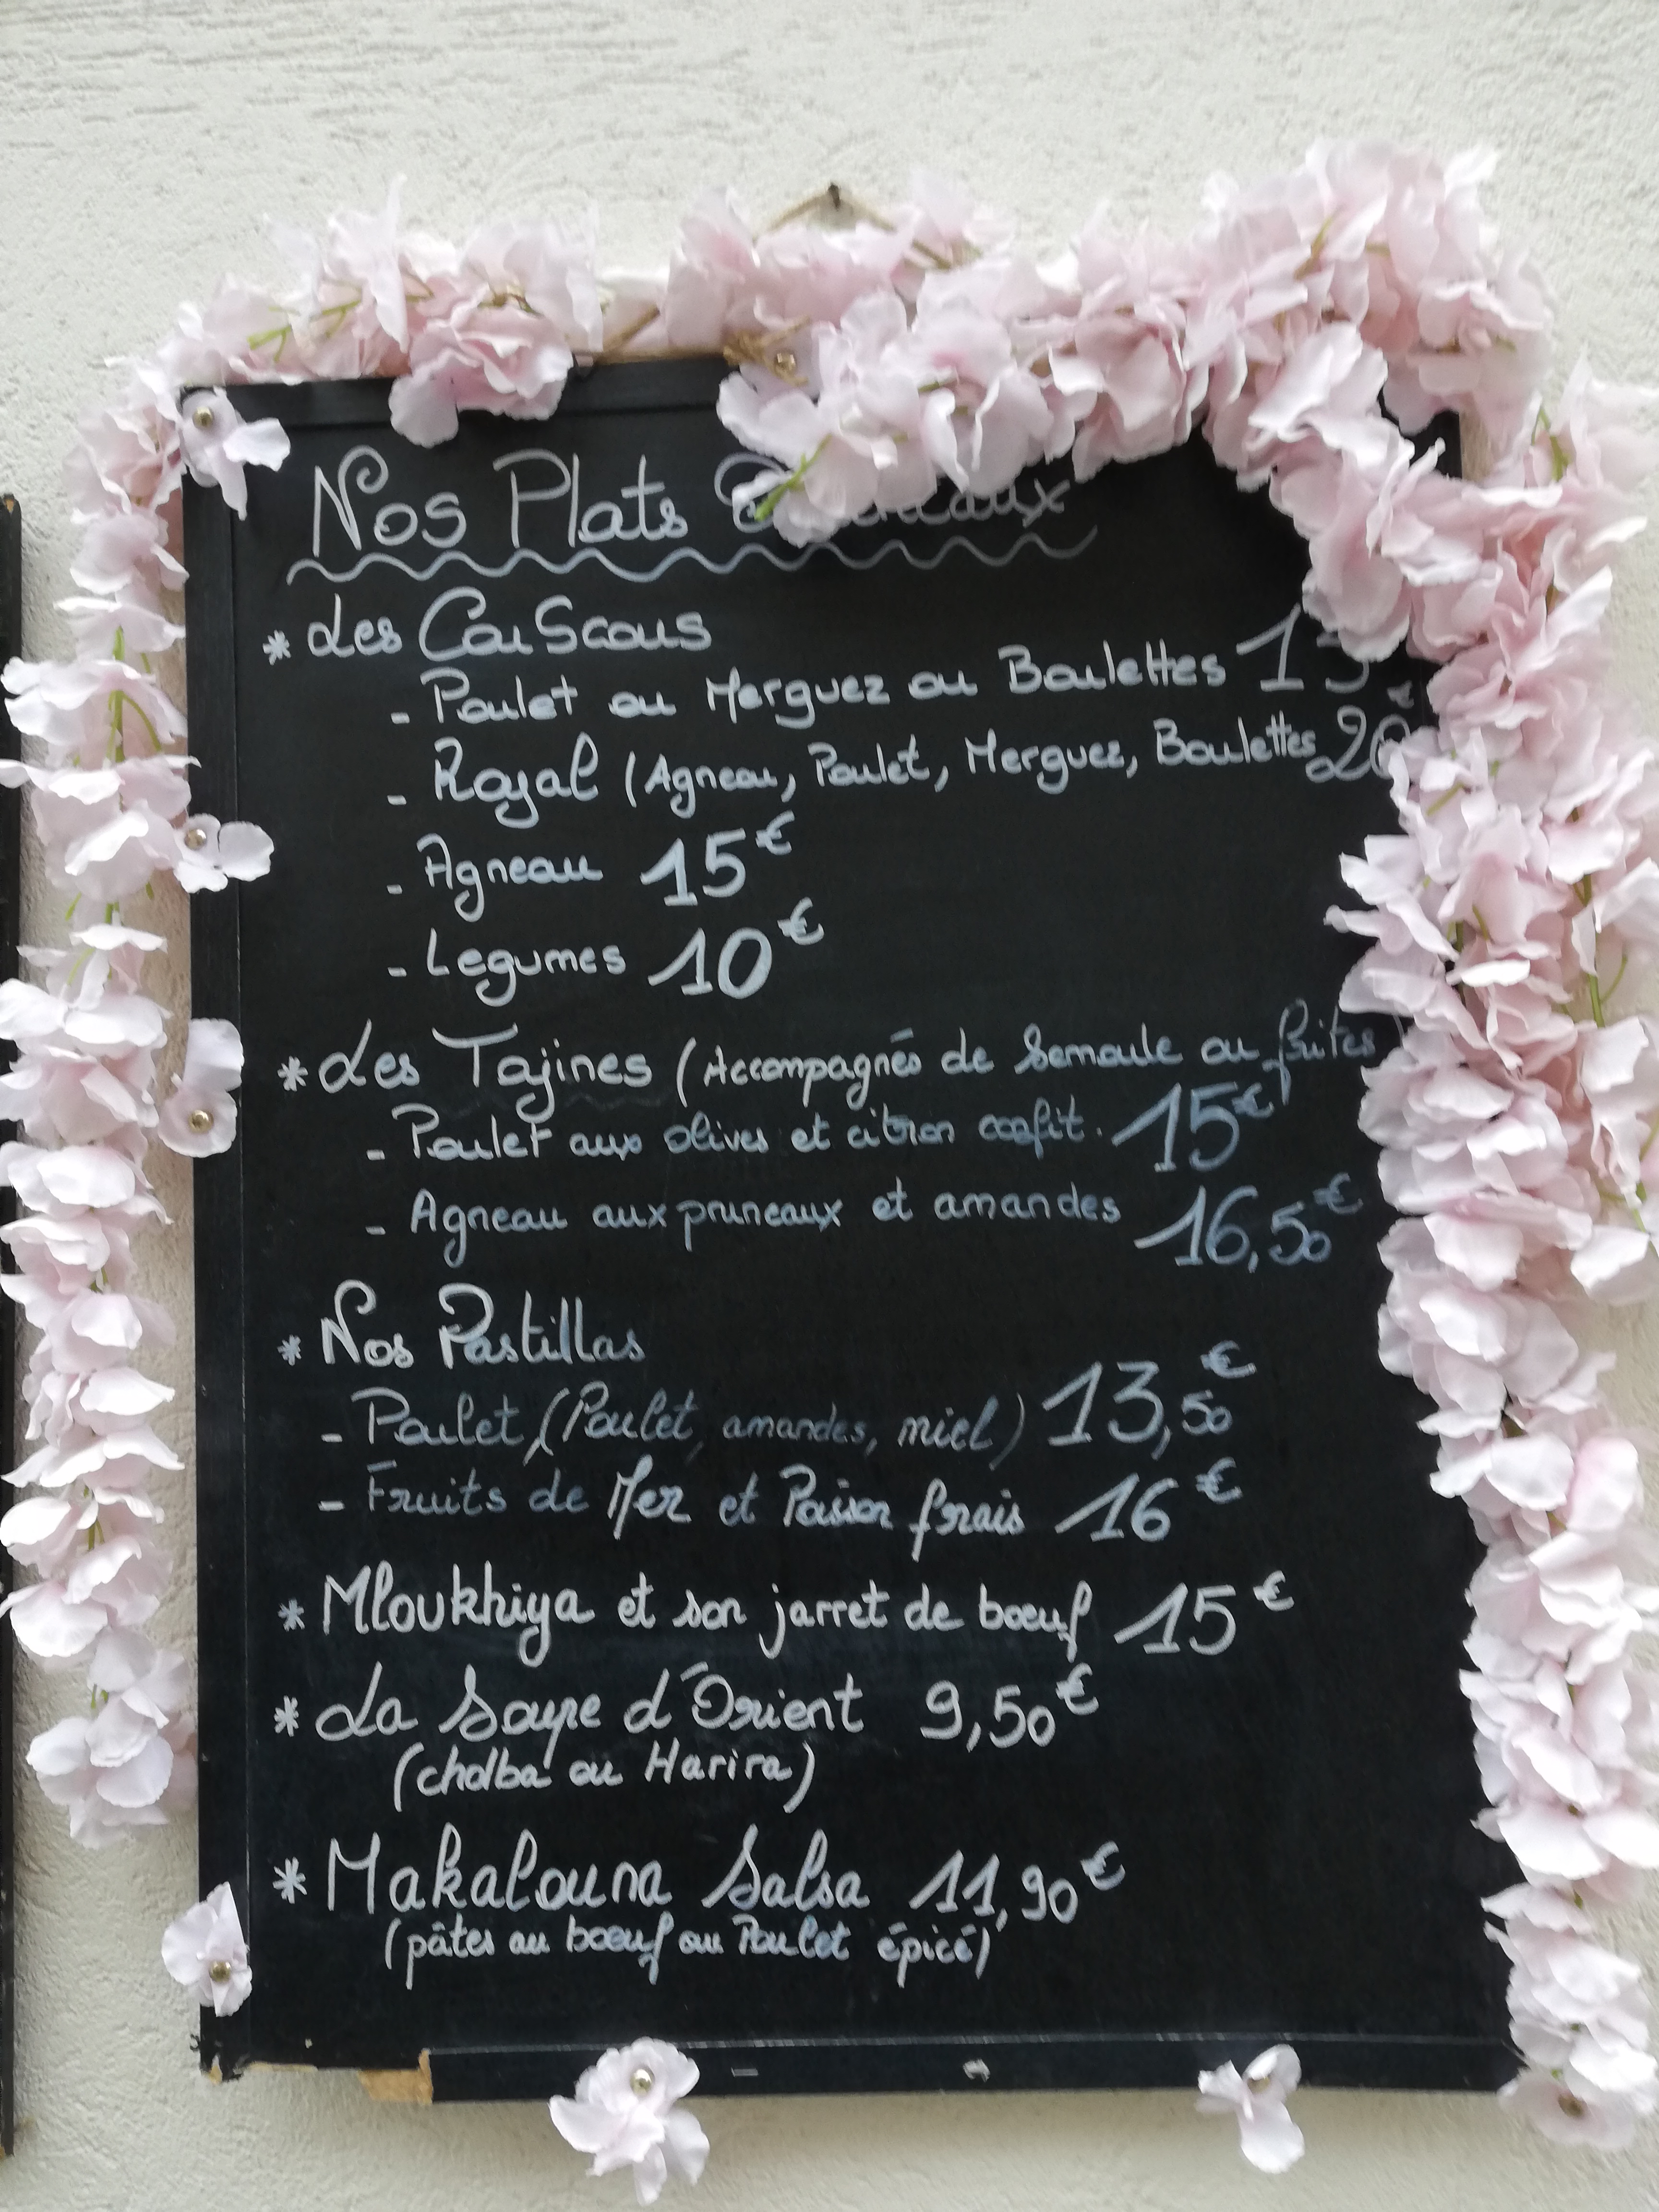 Nos Plats
* Les CouScous
- Poulet ou Merguez ou Boulettes 13
- Royal (Agneau, Poulet, Merguez, Boulettes 20
- Agneau 15€
- Legumes 10€
* Les Tajines (Accompagnés de Semoule ou frites
- Poulet aux olives et citron confit. 15€
- Agneau aux pruneaux et amandes 16,50€
* Nos Pastillas
- Poulet (Poulet, amandes, miel) 13,50€
- Fruits de Mer et Poisson frais 16€
* Mloukhiya et son jarret de bœuf 15€
* La Soupe d'Orient 9,50€
(chorba ou Harira)
* Makalouna Salsa 11,90€
(pâtes au bœuf ou Poulet épicé)